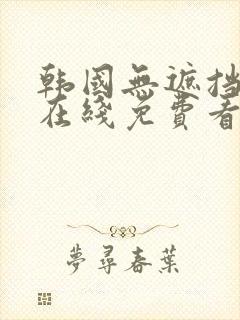 韩国無遮挡
在綫免費看
夢尋春葉